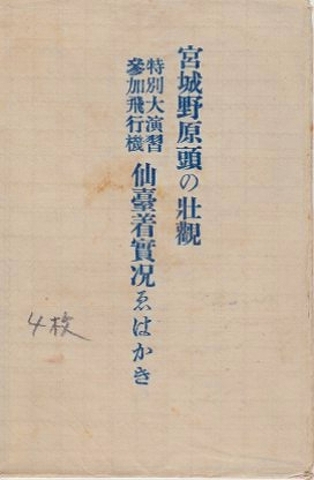 宮城野原頭の壯觀
特別大演習
參加飛行機
仙臺着實况ゑはかき
4枚